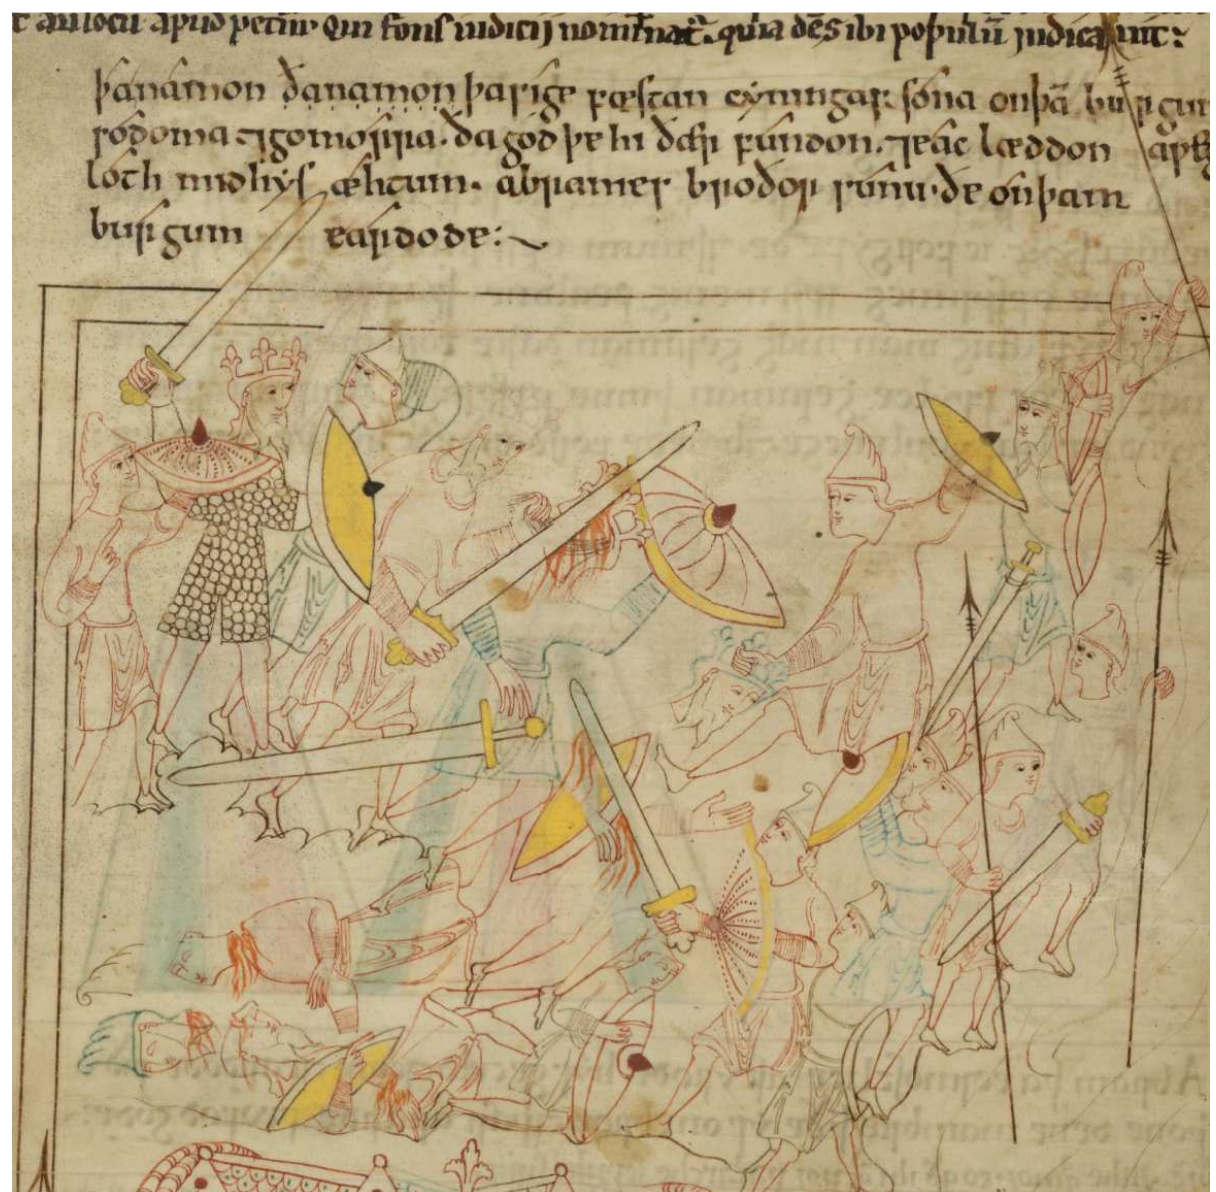 ad locū apud petrū Qui fons iudicij nominat̄. quia dēs ibi populū judicauit:
þanamon ðanamon þasige fæstan cyningas sona onþā burgum
sodoma ⁊gomorra. ða god þe hi ðær fundon. ⁊eac læddon aƿeg
loth midhys æhtum. abrames broðor sunu. ðe onþam
burgum eardode: